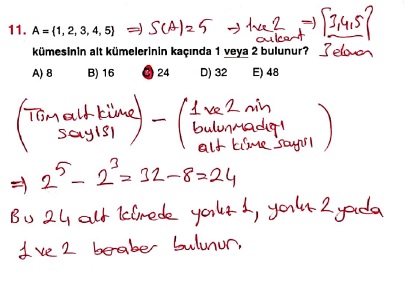 11. A = {1, 2, 3, 4, 5} ⇒ S(A)=5 → 1 ve 2 ⇒ {3,4,5}
kümesinin alt kümelerinin kaçında 1 veya 2 bulunur? 3 eleman
A) 8 B) 16 C) 24 D) 32 E) 48
(Tüm alt küme sayısı) - (1 ve 2 nin bulunmadığı alt küme sayısı)
⇒ 2^5 - 2^3 = 32 - 8 = 24
Bu 24 alt kümede yalnız 1, yalnız 2 yada
1 ve 2 beraber bulunur.